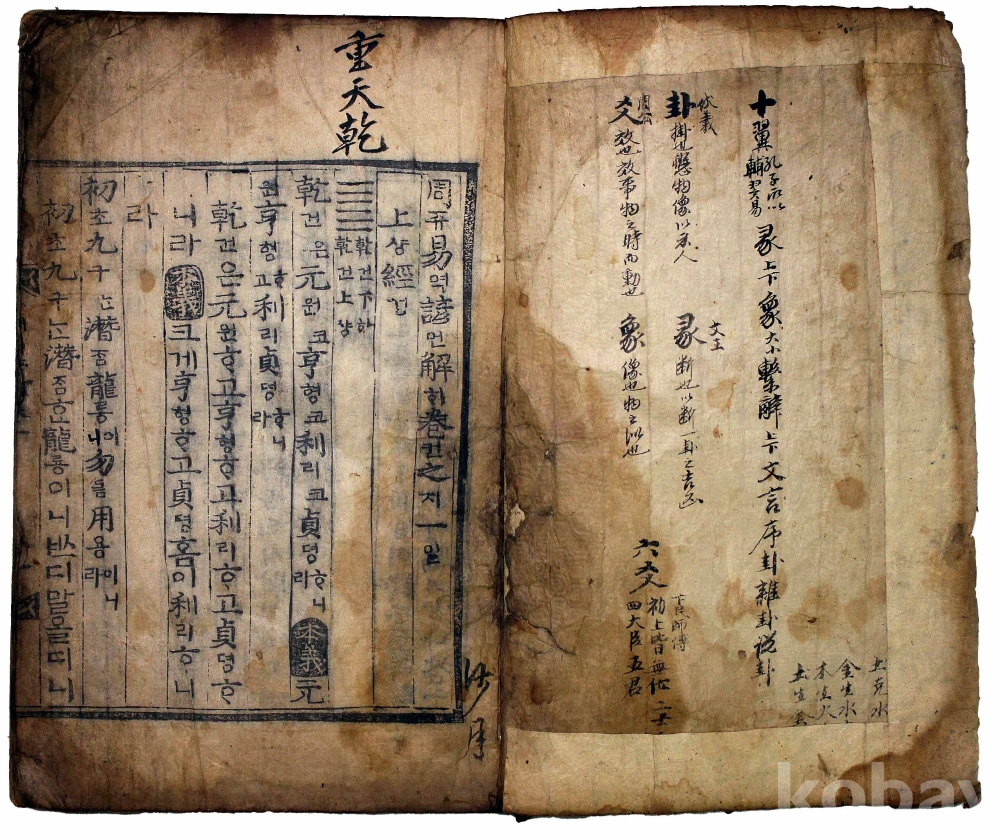 十翼孔子所以輔翼易彖上下象大小繫辭上下文言序卦雜卦說卦
伏羲
卦掛也懸物像以示人
文王
彖斷也以斷一卦之吉凶
周公
爻效也效事物之時而動也
象像也物之似也
六爻初上皆無位
四大臣五君
土克水
金生水
木生火
土生金
重天乾
周쥬易역諺언解ᄒᆡ卷권之지一일
上샹經경
乾건下하
乾건上샹
乾건은元원코亨형코利리코貞뎡ᄒᆞ니라本義元
원亨형ᄒᆞ고利리貞뎡ᄒᆞ니라
乾건은元원ᄒᆞ고亨형ᄒᆞ고利리ᄒᆞ고貞뎡ᄒᆞ
니라本義크게亨형ᄒᆞ고貞뎡홈이利리ᄒᆞ니
라
初초九구ᄂᆞᆫ潛ᄌᆞᆷ龍룡이니勿믈用용이니라
初초九구ᄂᆞᆫ潛ᄌᆞᆷᄒᆞᆫ龍룡이니ᄡᅳ디말올띠니
kobay